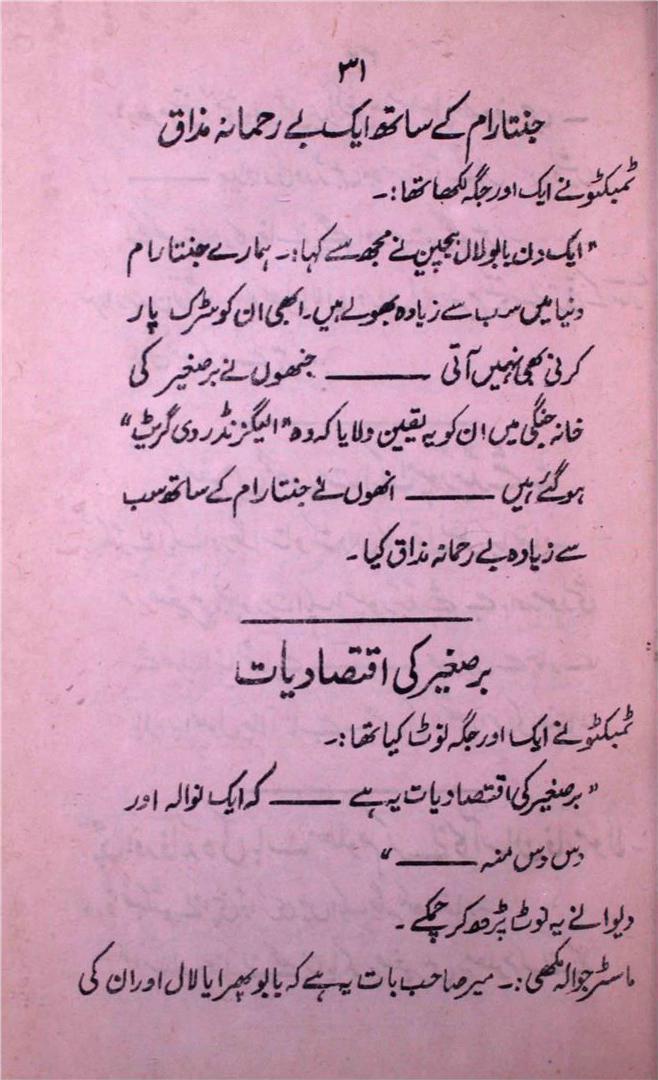 ۳۱
جنتا رام کے ساتھ ایک بے رحمانہ مذاق
ٹمبکٹو نے ایک اور جگہ لکھا تھا:۔
"ایک دن بابو لال بیجپن نے مجھ سے کہا:۔ ہمارے جنتا رام
دنیا میں سب سے زیادہ بھولے ہیں۔ ابھی ان کو سڑک پار
کرنی بھی نہیں آتی ——— جنھوں نے برصغیر کی
خانہ جنگی میں ان کو یہ یقین دلایا کہ وہ "الیگزنڈر دی گریٹ"
ہو گئے ہیں ——— انھوں نے جنتا رام کے ساتھ سب
سے زیادہ بے رحمانہ مذاق کیا۔
برصغیر کی اقتصادیات
ٹمبکٹو نے ایک اور جگہ نوٹ کیا تھا:۔
"برصغیر کی اقتصادیات یہ ہے ——— کہ ایک نوالہ اور
دس دس منہ ———"
دیوانے یہ نوٹ پڑھ کر چمکے۔
ماسٹر جوالہ مکھی:۔ میر صاحب بات یہ ہے کہ بابو پھرایا لال اور ان کی